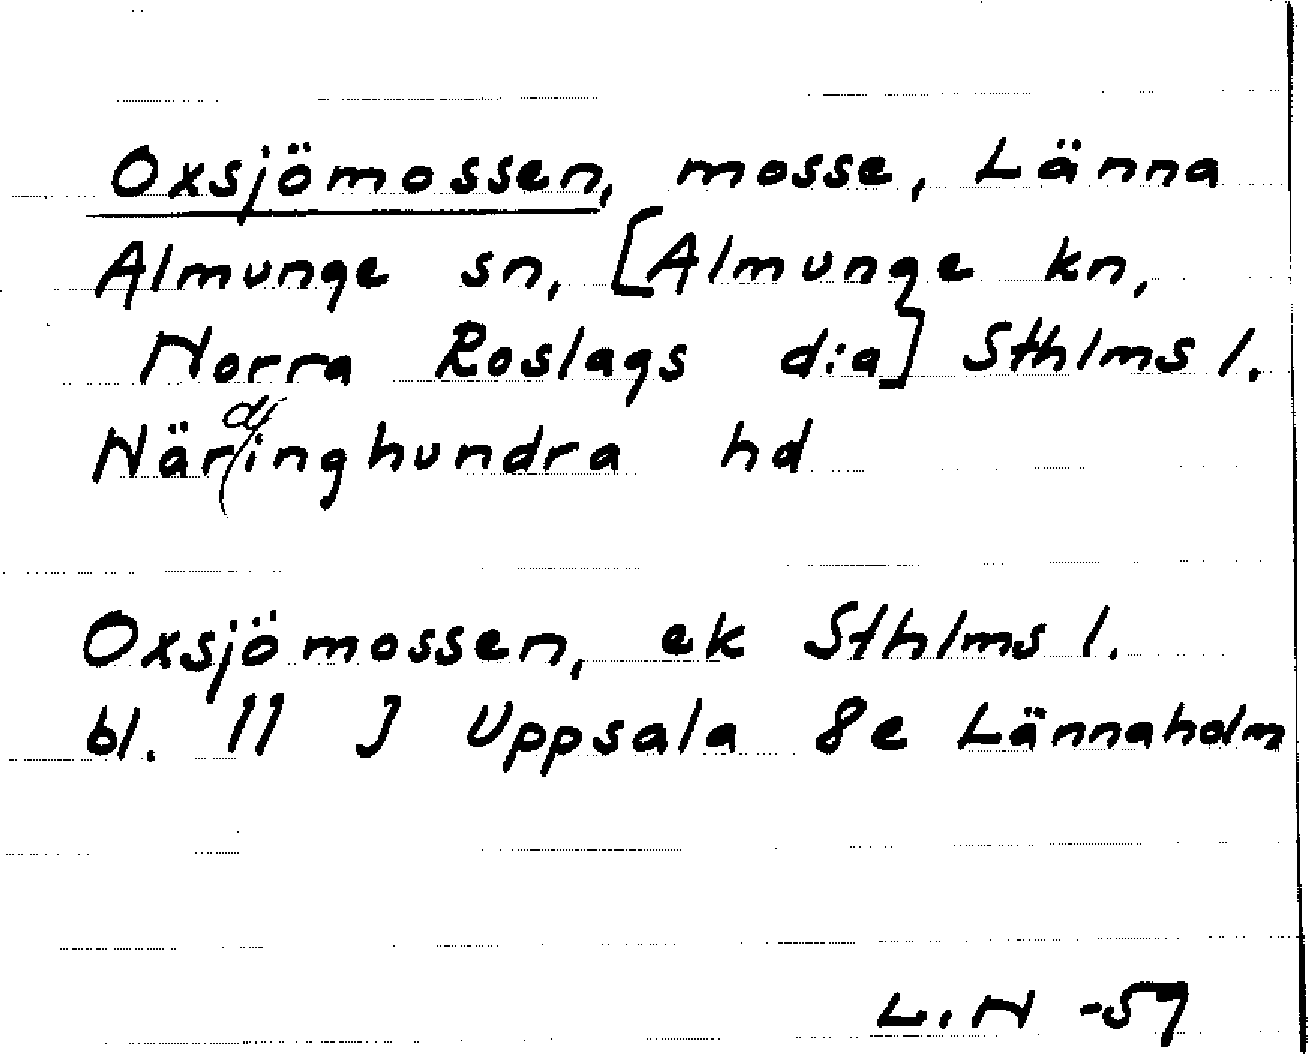 Oxsjömossen, mosse, Länna
Almunge sn, [Almunge kn,
Norra Roslags d:a] Sthlms l.
Närdinghundra hd
Oxsjömossen, ek Sthlms l.
bl. 11 J Uppsala 8e Lännaholm
L.N -59